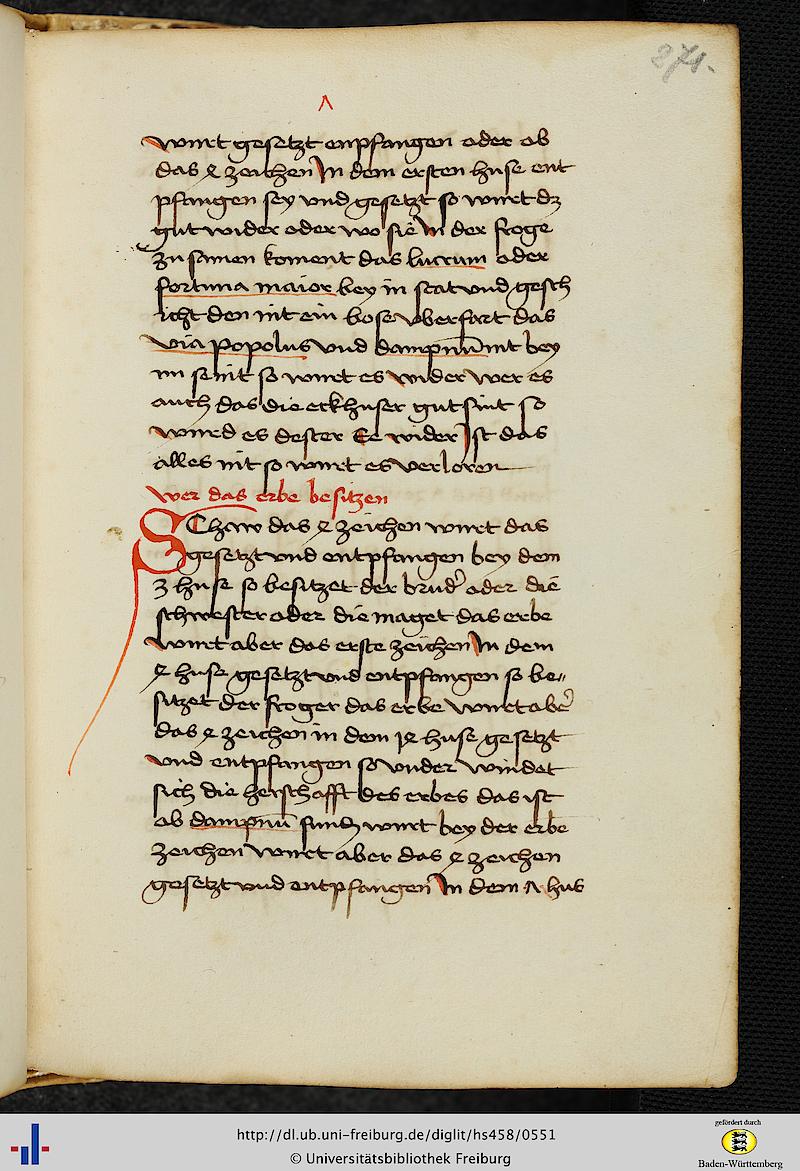 271.
Λ
wurt gesetzt enpfangen oder ob
das 4 zeichen In dem ersten huse ent
pfangen sey vnd gesetzt so wurt dz
gut wider oder wo sie In der froge
zu samen koment das lucrum oder
fortuna maior bey in stat vnd gesch
icht den nit ein bose vberfart das
via popolus vnd dampnū nit bey
im se nit so wurt es wider wer es
auch das die eckhuser gut sint so
wurd es dester Ee wider Ist das
alles nit so wurt es verloren
wer das erbe besitzen
SChaw das 4 zeichen wurt das
gesetzt vnd entpfangen bey dem
3 huse so besitzet der brud' oder die
schwester oder die maget das erbe
wurt aber das erste zeichen In dem
4 huse gesetzt vnd entpfangen so be„
sitzet der froger das erbe wurt abe'
das 4 zeichen in dem 14 huse gesetzt
vnd entpfangen so vnder windet
sich die herschafft des erbes das ist
ob dampnū wurt bey der erbe
zeichen wurt aber das 4 zeichen
gesetzt vnd entpfangen In dem Λ hus
http://dl.ub.uni-freiburg.de/diglit/hs458/0551
© Universitätsbibliothek Freiburg
gefördert durch
Baden-Württemberg